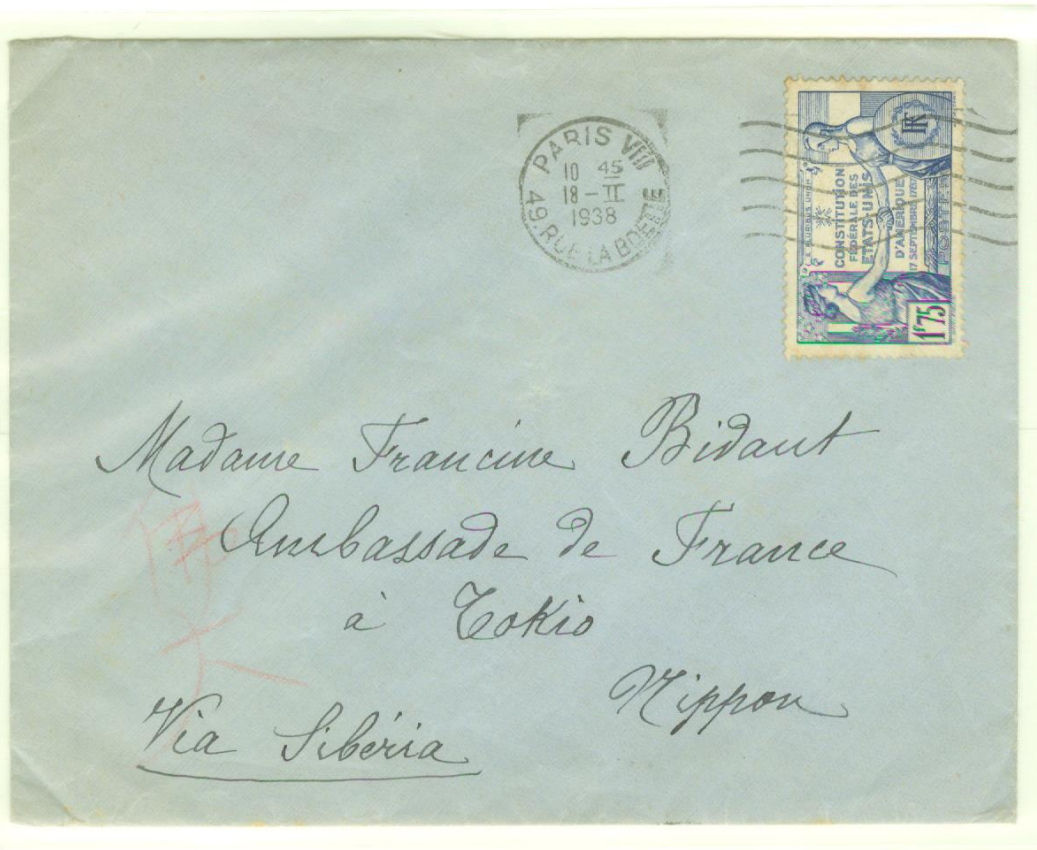 PARIS VIII
10 45
18 - II
1938
49. RUE LA BOETIE
E PLURIBUS UNUM
CONSTITUTION
FÉDÉRALE DES
ETATS-UNIS
D'AMÉRIQUE
17 SEPTEMBRE 1787
POSTES
RF
1F75
Madame Francine Bidaut
Ambassade de France
à Tokio
Nippon
Via Sibéria
佛
大